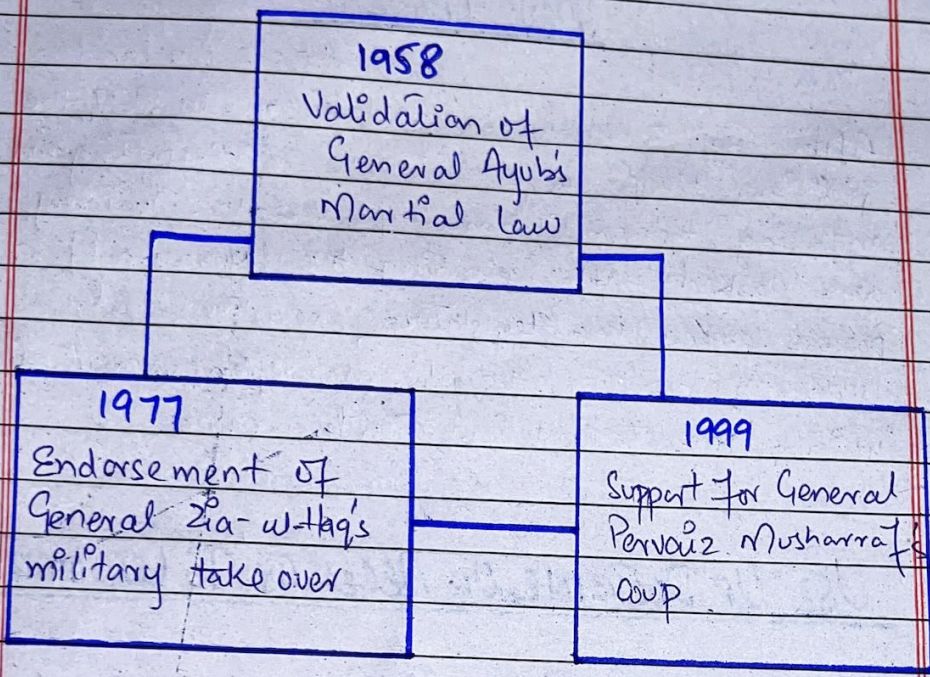 1958
Validation of
General Ayub's
Martial law
1977
Endorsement of
General Zia-ul-Haq's
military take over
1999
Support for General
Pervaiz Musharraf's
Coup.